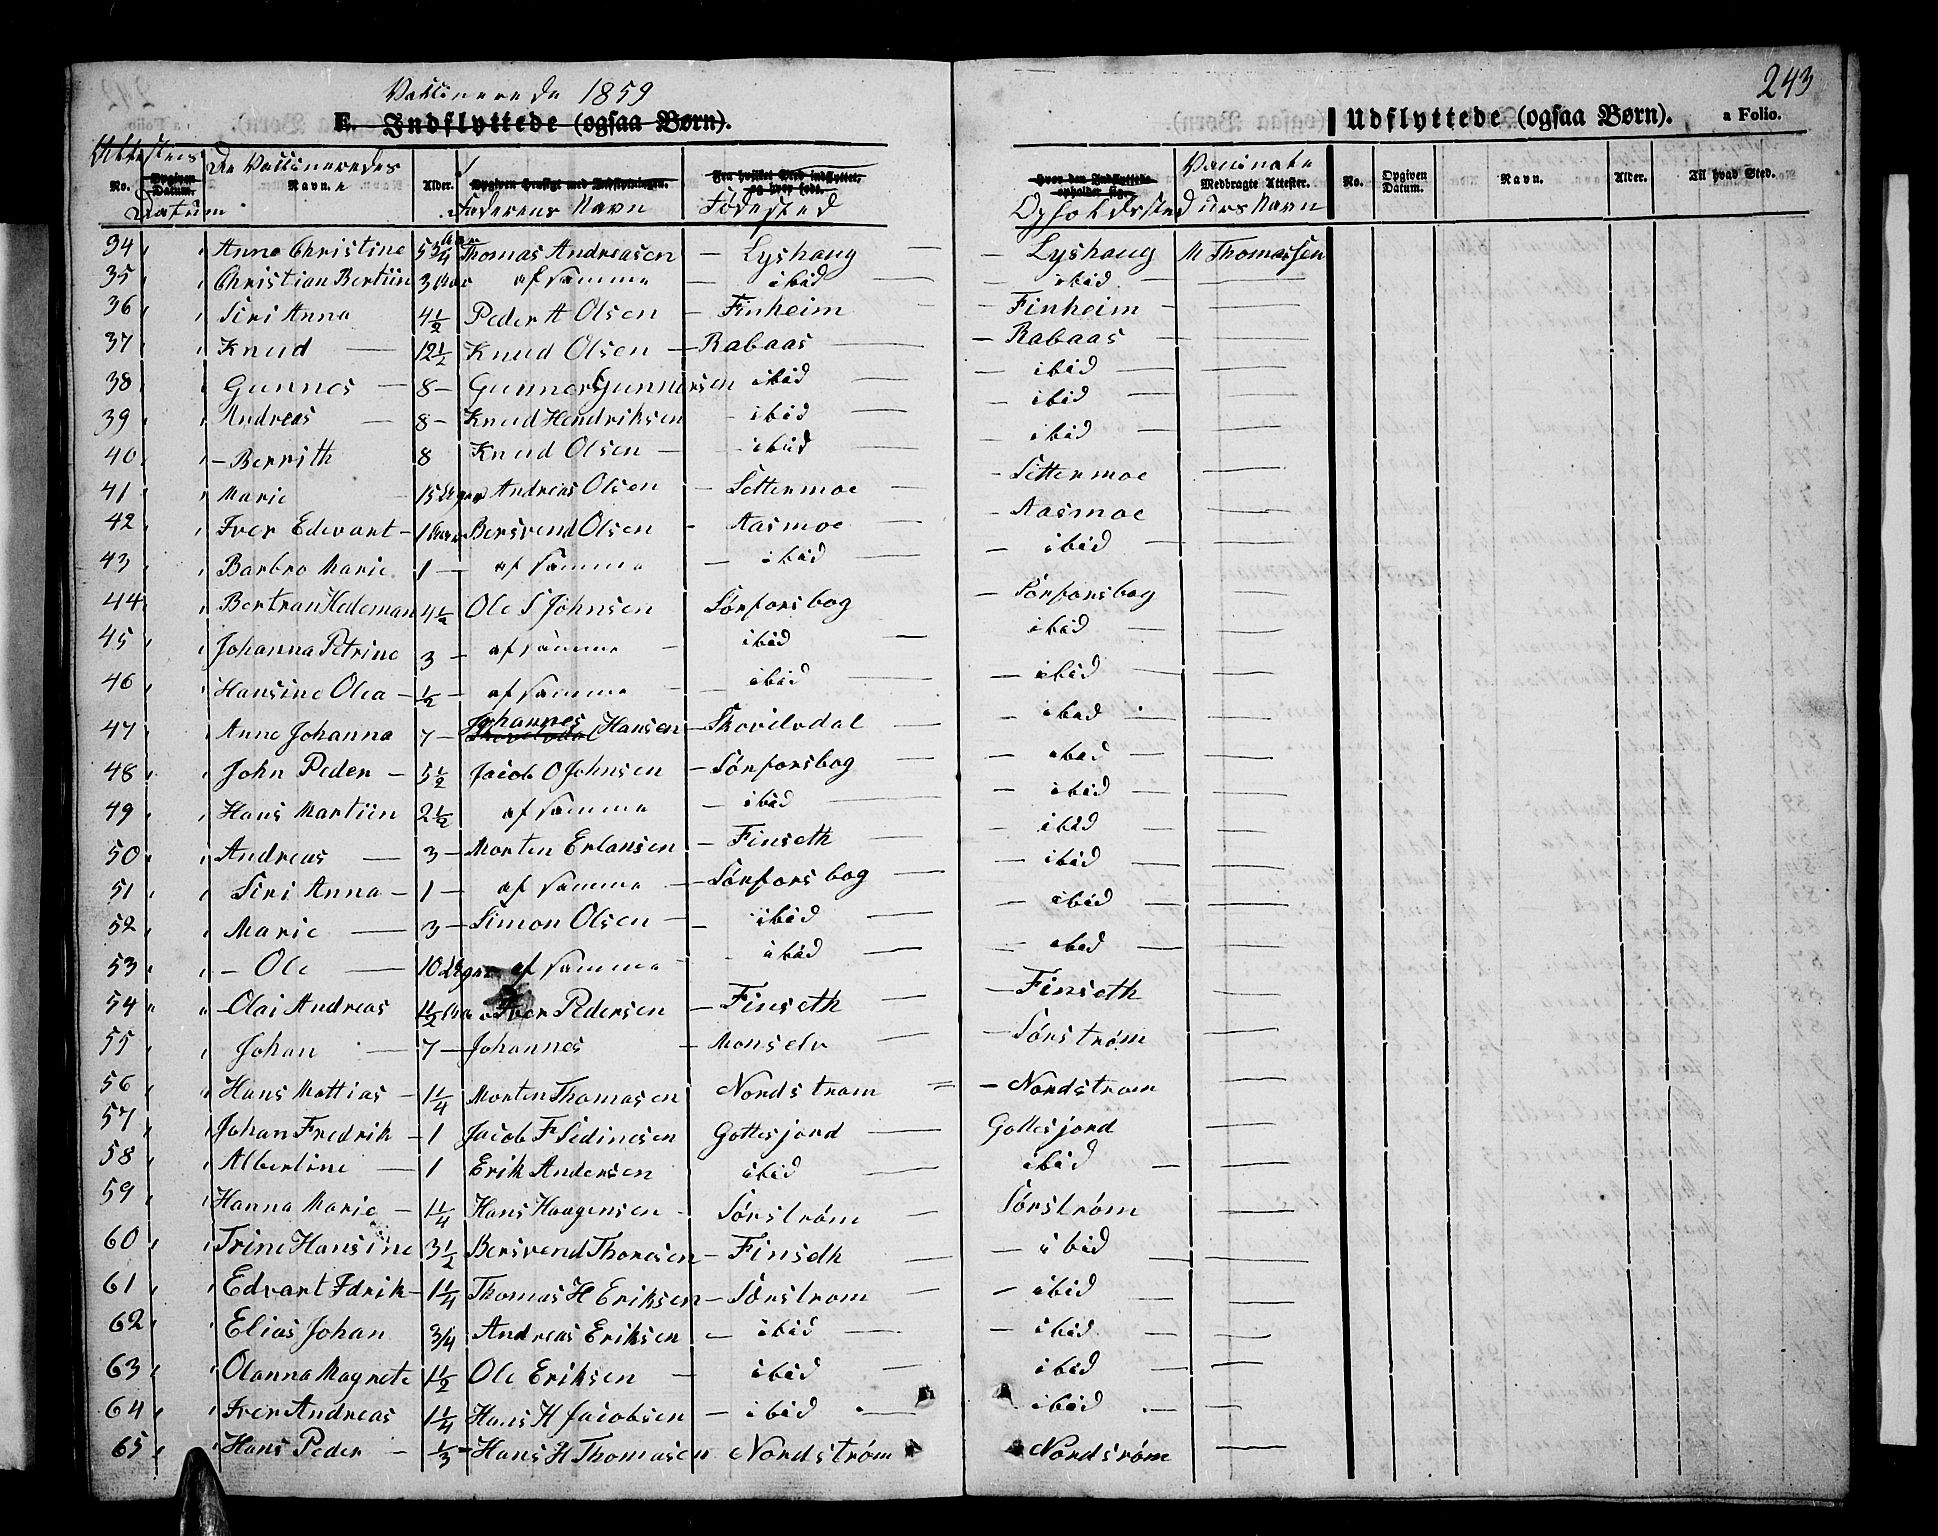 Vakcinerede 1859
243
E. Indflyttede (ogsaa Børn).
Udflyttede (ogsaa Børn).
a Folio.
Attestens De Vakcineredes Vaccinate
No. Opgiven Datum. Navn. Alder. Opgiven Hensigt med Indflytningen. Fra hvilket Sted indflyttet, og hvor født. Hvor den Indflyttede opholder sig. Medbragte Attester. No. Opgiven Datum. Navn. Alder. Til hvad Sted.
Datum Faderens Navn Fødested Opholdssted urs Navn
34 Anne Christine 5 3/4 Aar Thomas Andreasen — Lyshaug — — Lyshaug M Thomassen
35 Christian Bertiin 3 Aar af samme — ibid — ibid —
36 Siri Anna 4 1/2 Peder A Olsen — Finheim — Finheim —
37 Knud — 12 1/2 Knud Olsen — Rabaas — — Rabaas —
38 Gunnes — 8 — Gunner Gunnersen ibid — — ibid —
39 Andreas — 8 — Knud Hendriksen — ibid — — ibid —
40 — Berrith 8 Knud Olsen — ibid — ibid —
41 Marie 15 Uger Andreas Olsen — Settermoe — — Settermoe —
42 Iver Edevart — 1 Aar Bersvend Olsen — Aasmoe — — Aasmoe —
43 Barbro Marie 1 — af samme — ibid — — ibid —
44 Bertran Hedeman 4 1/2 Ole S Johnsen Sørforsbog — Sørforsbog
45 Johanna Petrine 3 — af samme — ibid — ibid —
46 Hansine Olea — 1/2 — af samme — ibid — — ibid —
47 Anne Johanna 7 — Johannes Hansen — Skovlvdal — — ibid —
48 John Peder — 5 1/2 Jacob O Johnsen — Sørforsbog — — ibid —
49 Hans Martiin 2 1/2 af samme — ibid — — ibid —
50 Andreas — 3 — Morten Erlansen — Finseth — ibid —
51 Siri Anna — 1 — af samme — Sørforsbog — — ibid —
52 Marie — 3 — Simon Olsen — ibid — — ibid —
53 — Ole — 10 Uger af samme ibid — — ibid —
54 — Olai Andreas 1 1/2 Aar Iver Pedersen — Finseth — — Finseth —
55 Johan — 7 — Johannes — Monselv — — Sørstrøm
56 Hans Mattias — 1 1/4 Morten Thomasen Nordstrom = — Nordstrom —
57 Johan Fredrik — 1 Jacob F Sedinesen Gottesjord — Gottesjord —
58 Albertine — 1 Erik Andersen ibid — ibid —
59 Hanna Marie — 1 1/4 Hans Haagensen — Sørstrøm — Sørstrøm —
60 Trine Hansine 3 1/2 Bersvend Thoresen — Finseth — — ibid —
61 Edvart Fdrik — 1 1/4 Thomas H Eriksen — Sørstrom — — ibid —
62 Elias Johan 3/4 Andreas Eriksen — ibid — — ibid —
63 Olanna Magrete 1 1/2 Ole Eriksen — ibid — ibid —
64 Iver Andreas 1 1/4 Hans H Jacobsen — ibid — ibid —
65 Hans Peder — 1/3 — Hans H Thomasen Nordstrøm Nordsrøm —